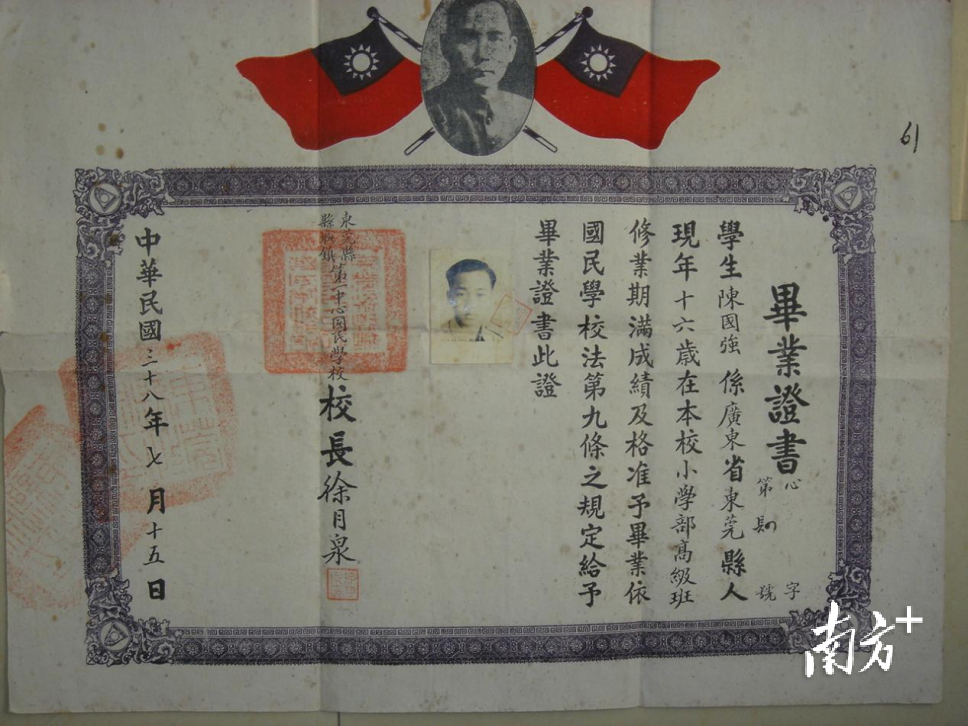 61
畢業證書
心 字
第 號
學生陳國強係廣東省東莞縣人
現年十六歲在本校小學部高級班
修業期滿成績及格准予畢業依
國民學校法第九條之規定給予
畢業證書此證
東莞縣
縣 鎮第一中心國民學校校長徐月泉
中華民國三十八年七月十五日
南方+